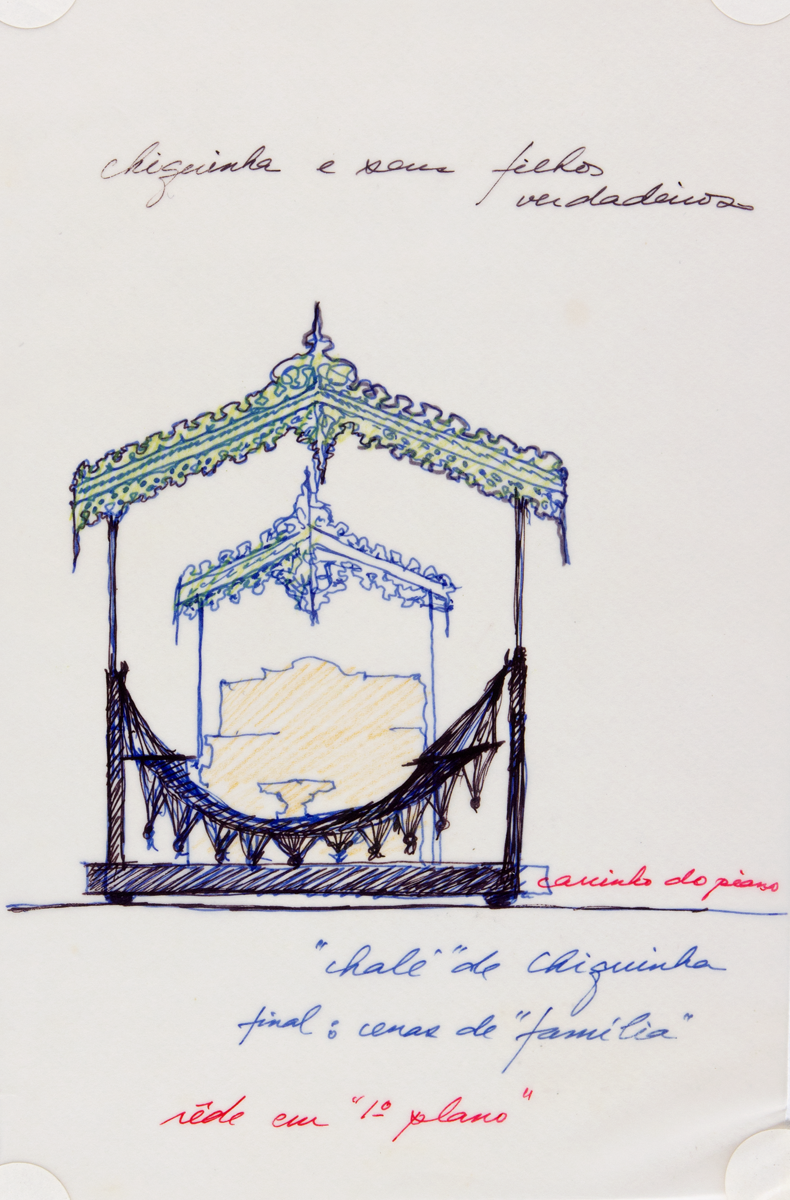 chiquinha e seus filhos
verdadeiros
carrinho do piano
"chalé" de chiquinha
final: cenas de "família"
rêde em "1º plano"